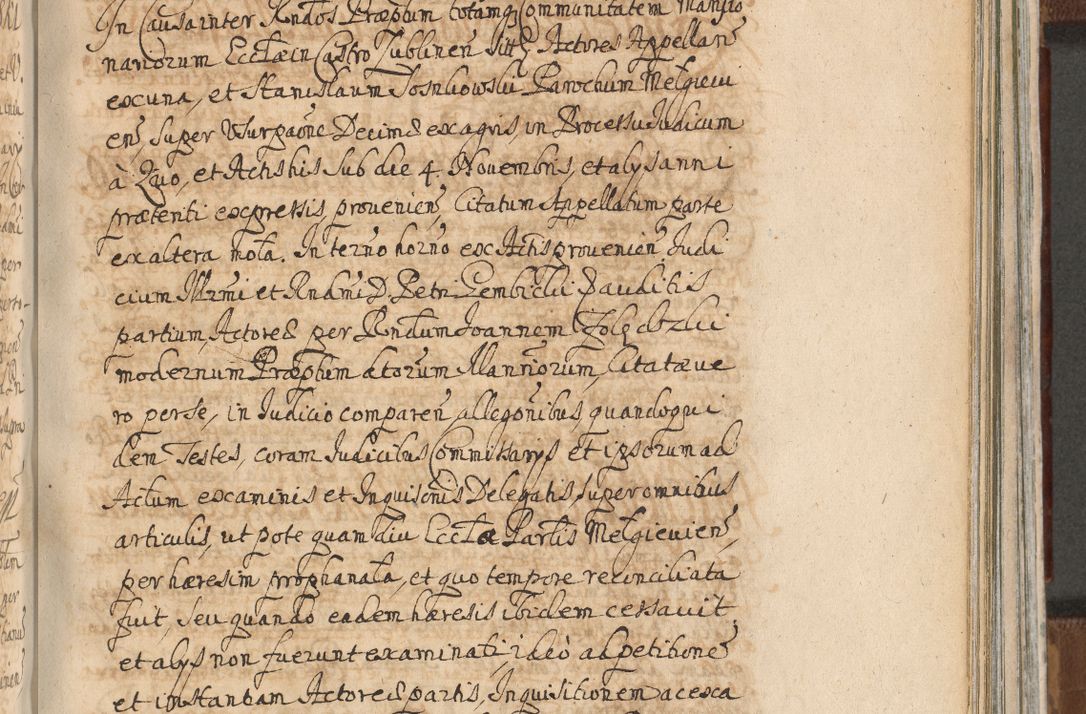 In Causa inter Rndos Præptum totamq Communitatem Mansio
nariorum Ecctæ in Castro Lublinen sitt Actores Appellan
ex una, et Stanislaum Sosnkowski Parochum Melgievi
en, super Usurgaone Decime ex agris, in Processu Iudicum
à Quo, et Actis his sub die 4. Novembris, et alys anni
præteriti expressis, provenien, Citatum Appellatum parte
ex altera mota. In termo horno ex Actis provenien Iudi
cium Illrmi et Rndmi D. Petri Gembicki auditis
partium, Actorea per Rndum Ioannem
modernum Præptum Mannorum, Citata ve
ro per se, in Iudicio comparen allegonibus, quandoqui
dem Testes, coram Iudicibus Commissarys et ipsorum ad
Actum examinis et Inquisonis Delegatis, super omnibus
articulis, ut pote quamdiu Ecctæ Partis Melgievien,
per hæresim prophanata, et quo tempore reconciliata
fuit, seu quando eadem hæresis ibidem cessavit,
et alys non fuerunt examinati, ideò ad petitione
et instantiam Actorea partis, Inquisitionem ac exa